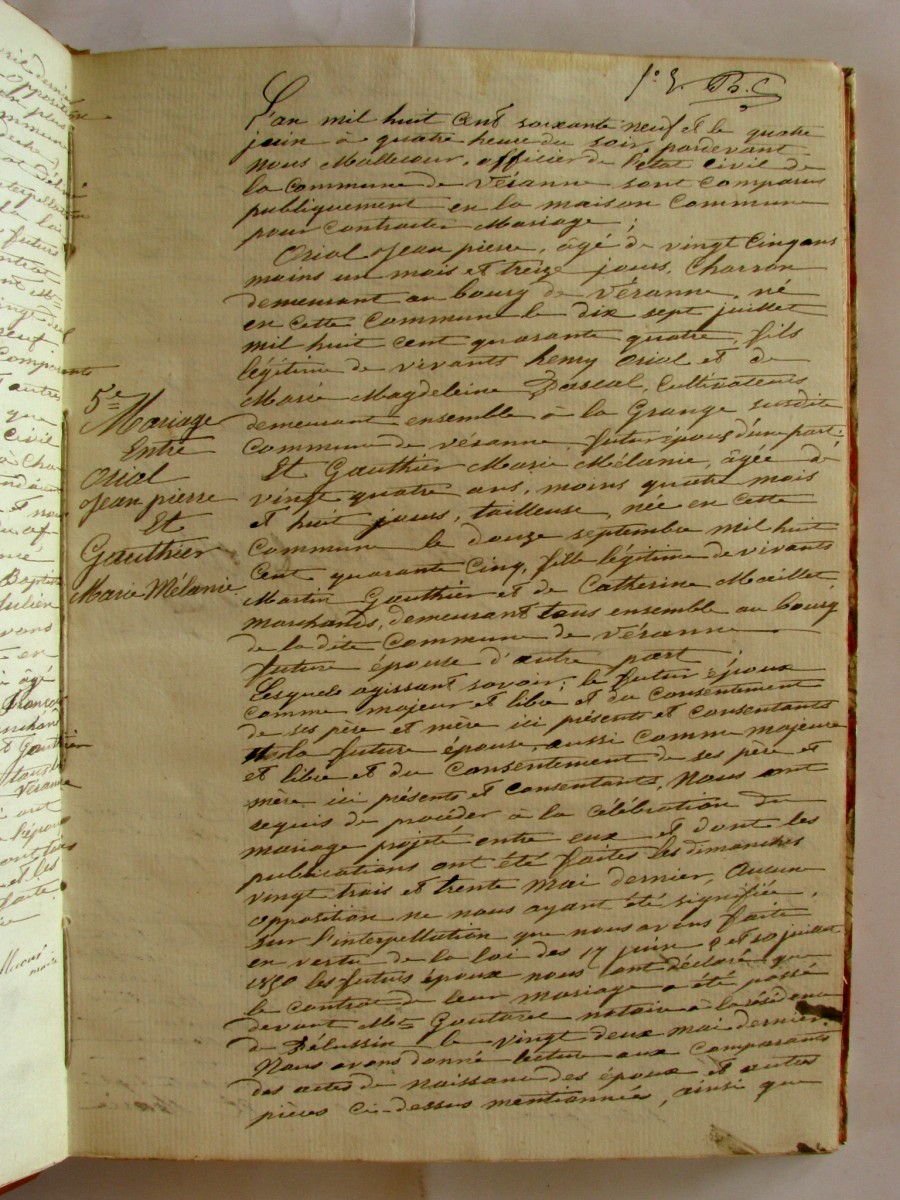 5e
Mariage
Entre
Oriol
Jean pierre
Et
Gauthier
Marie Mélanie
L'an mil huit Cent soixante neuf et le quatre
juin à quatre heure du soir pardevant
nous officier de l'état civil de
la commune de Véranne sont comparus
publiquement en la maison Commune
pour contracter Mariage ;
Oriol Jean pierre, âgé de vingt Cinq ans
moins un mois et treize jours, Charron
demeurant au bourg de Véranne, né
en cette Commune le dix sept juillet
mil huit cent quarante quatre, fils
légitime de vivants henry Oriol et de
Marie Magdeleine Pascal, Cultivateurs
demeurant ensemble à la Grange susdite
Commune de Véranne, futur époux d'une part.
Et Gauthier Marie Mélanie, âgée de
vingt quatre ans, moins quatre mois
et huit jours, tailleuse, née en cette
commune le douze septembre mil huit
Cent quarante Cinq, fille légitime de vivants
Martin Gauthier et de Catherine Maillet,
marchands, demeurant tous ensemble au bourg
de la dite Commune de Véranne
future épouse d'autre part
Lesquels agissant savoir ; le futur époux
comme majeur et libre et du Consentement
de ses père et mère ici présents et consentants
et la future épouse, aussi Comme majeure
et libre et du Consentement de ses père et
mère ici présents et consentants, Nous ont
requis de procéder à la célébration du
mariage projeté entre eux et dont les
publications ont été faites les dimanches
vingt trois et trente mai dernier, Aucune
opposition ne nous ayant été signifiée,
sur l'interpellation que nous avons faite
en vertu de la loi des 17 juin et 10 juillet
1850 les futurs époux nous ont déclaré que
le contrat de leur mariage a été passé
devant Me notaire à la résidence
de Pélussin le vingt deux mai dernier.
Nous avons donné lecture aux comparants
des actes de naissance des époux et autres
pièces ci-dessus mentionnées, ainsi que